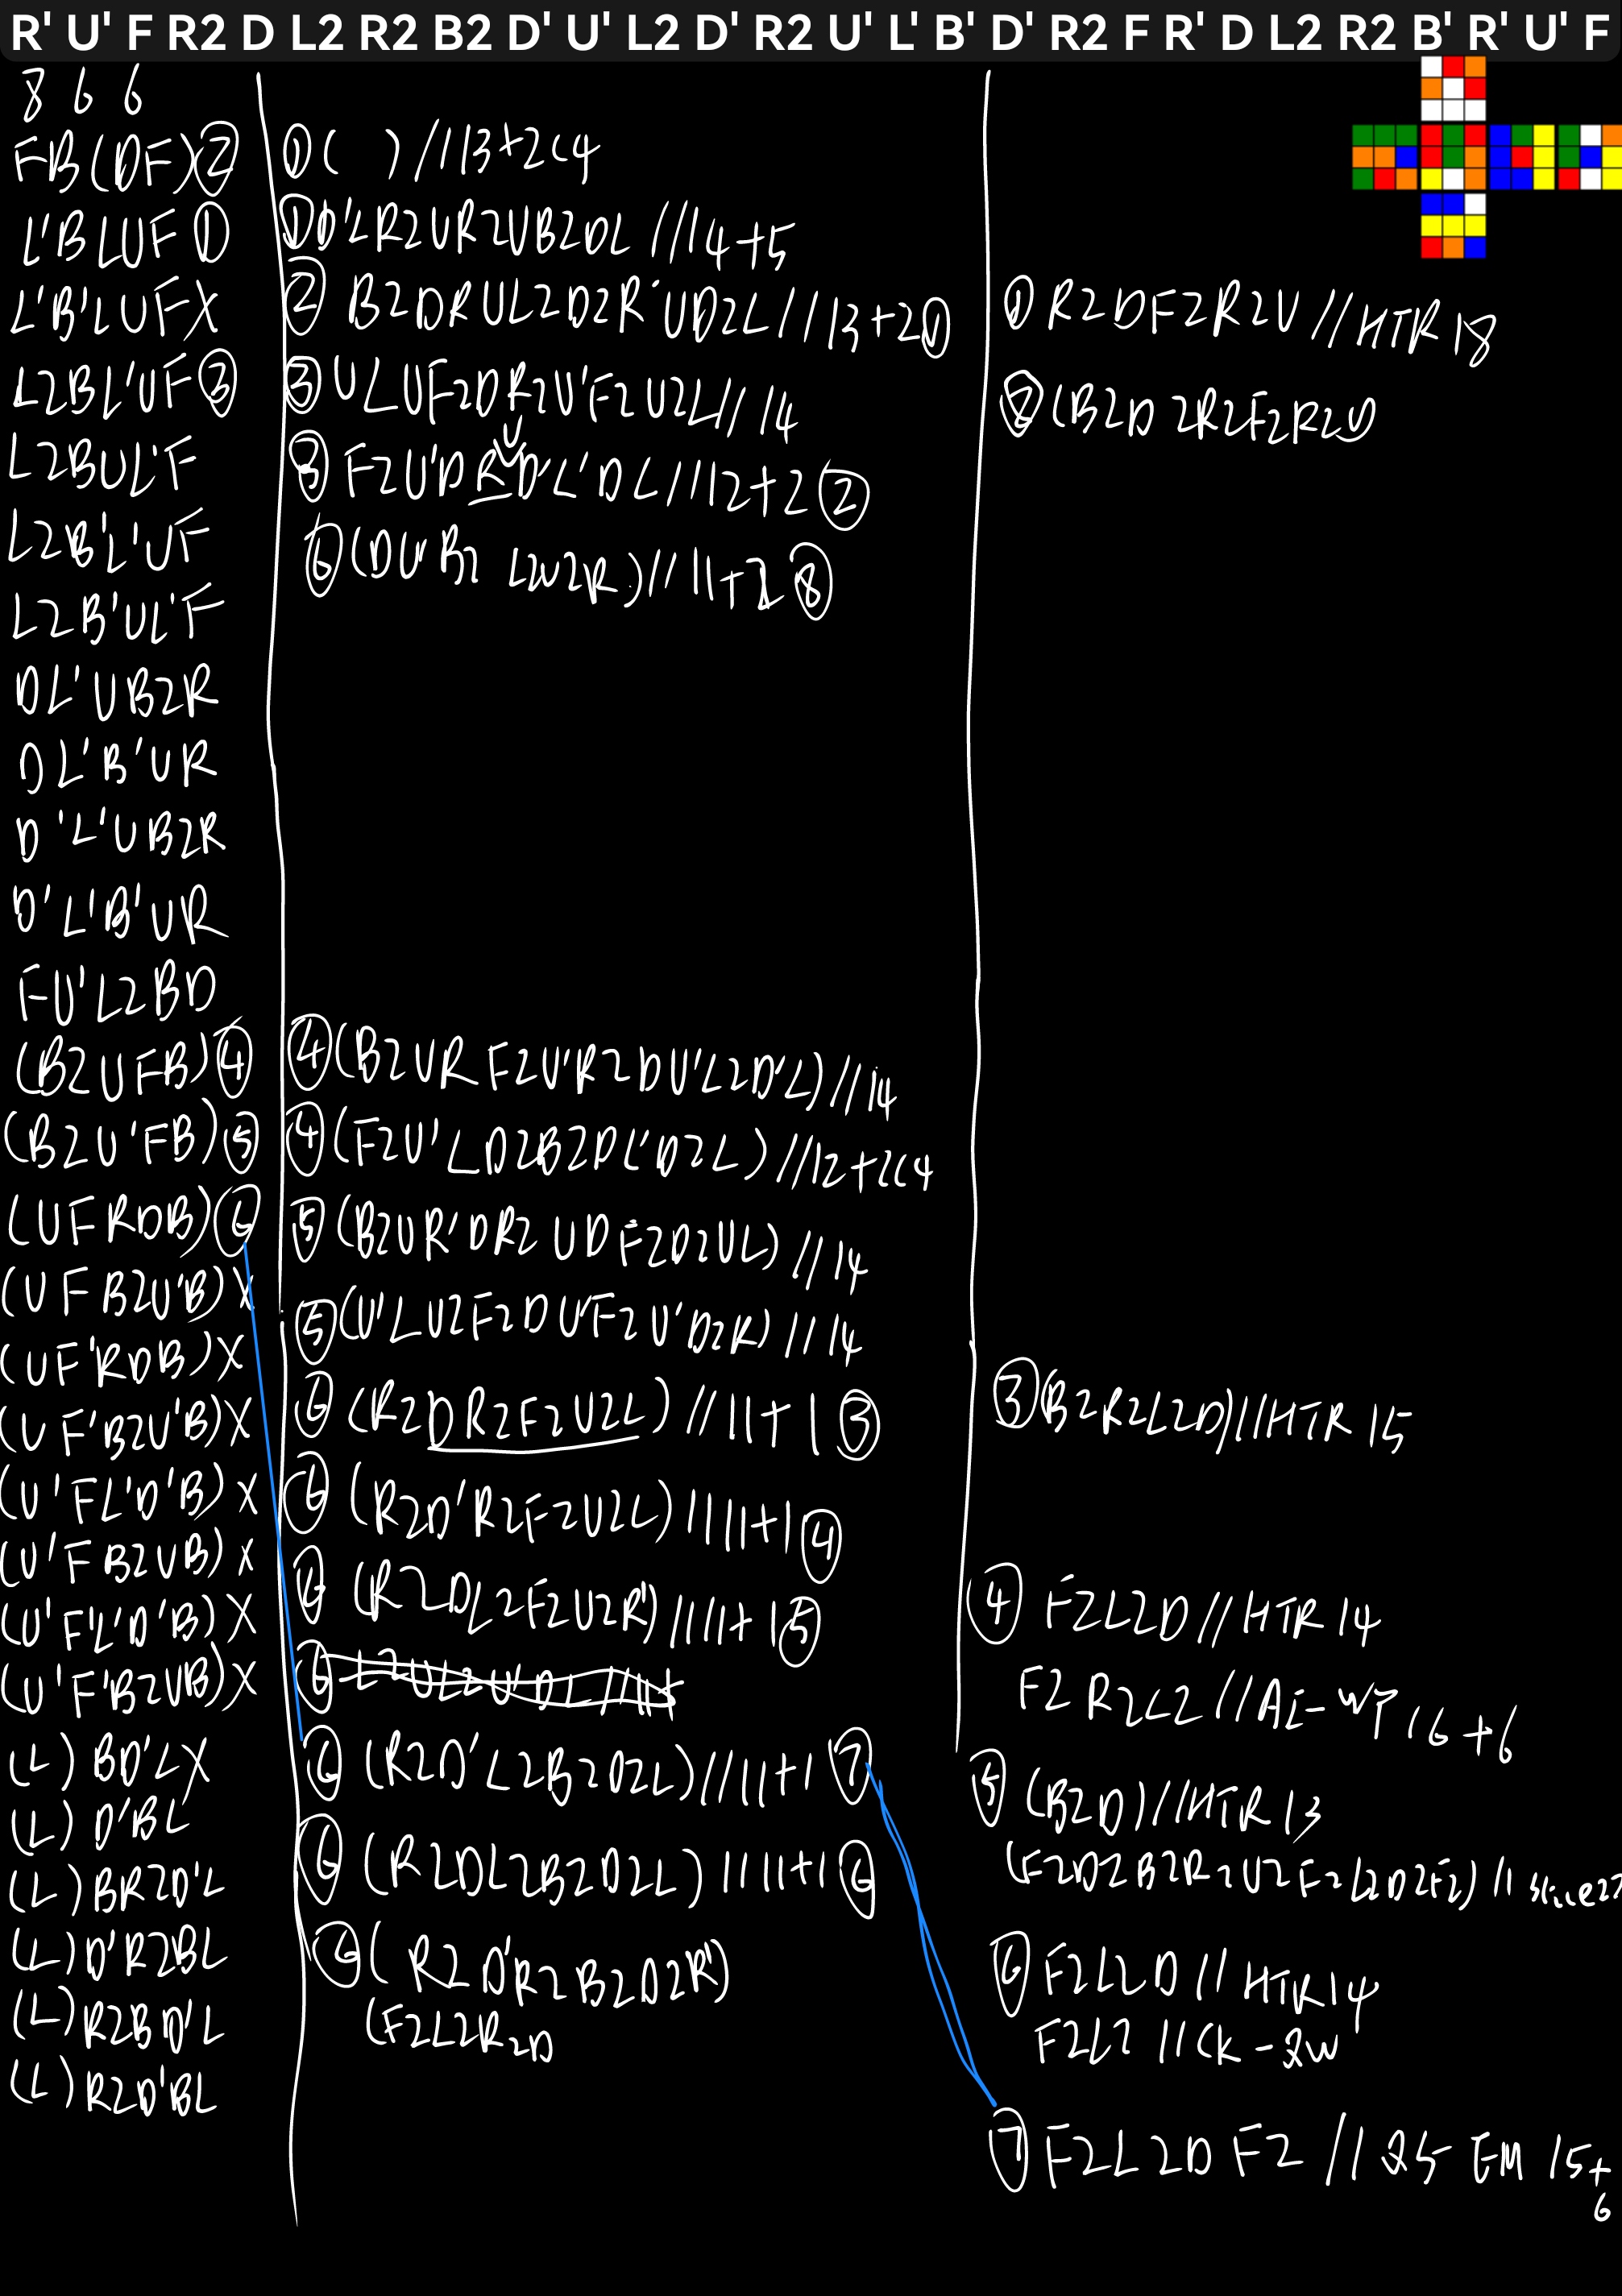 R' U' F R2 D L2 R2 B2 D' U' L2 D' R2 U' L' B' D' R2 U F R' D L2 R2 B' R' U' F
8 6 6
FB(DF)②
L'BLUF①
L'B'LUFX
L2BL'UF③
L2BUL'F
L2B'L'UF
L2B'UL'F
DL'UB2R
DL'B'UR
D'L'UB2R
D'L'B'UR
FU'L2BD
(B2UFB)④
(B2U'FB)⑤
(UFRDB)⑥
(UFB2U'B)X
(UF'RDB)X
(UF'B2U'B)X
(U'FL'D'B)X
(U'FB2UB)X
(U'F'L'D'B)X
(U'F'B2UB)X
(L)BD'LX
(L)D'BL
(L)BR2D'L
(L)D'R2BL
(L)R2BD'L
(L)R2D'BL
①( )//13+2c4
①D'LR2UR2UB2DL//14+5
②B2DRUL2D2R'UD2L//13+2①
③ULUF2DR2U'F2U2L//14
U
③F2U'DRD'L'DL//12+2②
⑥(DU'B2L2U2R)//11+2⑧
④(B2URF2U'R2DU'L2D'L)//14
④(F2U'LD2B2DL'D2L)//12+2c4
⑤(B2UR'DR2UDF2D2UL)//14
⑤(U'LU2F2DU'F2U'D2R)//14
⑥(R2DR2F2U2L)//11+1③
⑥(R2D'R2F2U2L)//11+1④
⑥(R2DL2F2U2R')//11+1⑤
⑥(R2D'L2B2D2L)//11+1⑦
⑥(R2DL2B2D2L)//11+1⑥
⑥(R2D'R2B2D2R')
(F2L2R2D
①R2DF2R2U//HTR18
②(B2D2R2F2R2U
③(B2R2L2D)//HTR15
④F2L2D//HTR14
F2R2L2//AI-WP16+6
⑤(B2D)//HTR13
(F2D2B2R2U2F2L2D2F2)//slice22
⑥F2L2D//HTR14
F2L2//CK-2W
⑦F2L2DF2//25 EM 15+
6